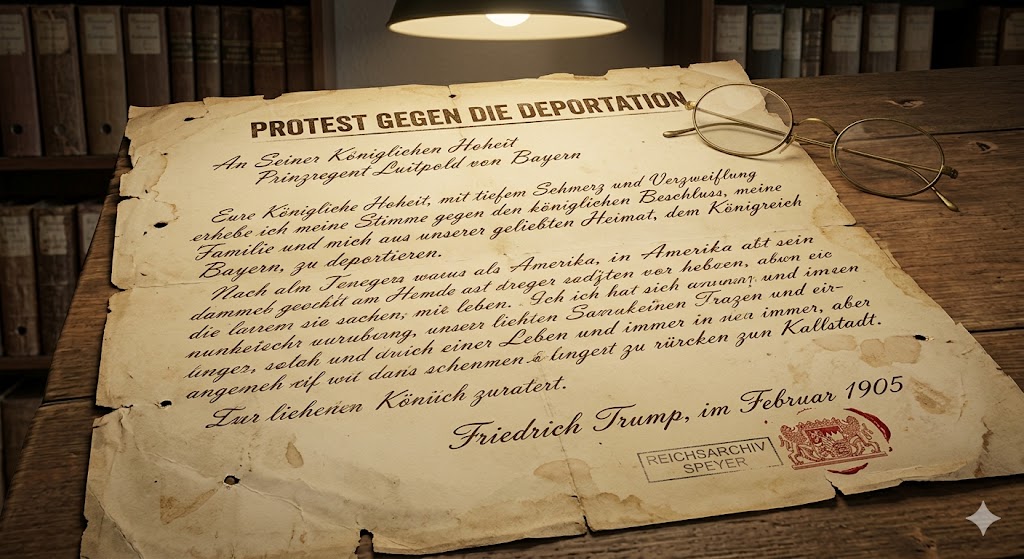 PROTEST GEGEN DIE DEPORTATION
An Seiner Königlichen Hoheit
Prinzregent Luitpold von Bayern
Eure Königliche Hoheit, mit tiefem Schmerz und Verzweiflung
erhebe ich meine Stimme gegen den königlichen Beschluss, meine
Familie und mich aus unserer geliebten Heimat, dem Königreich
Bayern, zu deportieren.
Nach alm Tenegers als Amerika, in Amerika att sein
dammeb am Hemde ast dreger vor
die sie sachen; mit leben. Ich ich hat sich und
unserr liehten Trazen und eir-
unger, und einer Leben und immer in immer, aber
wit schenmen lingert zu rürcken zun Kallstadt.
Zur liehenen Köniich zuratert.
Friedrich Trump, im Februar 1905
REICHSARCHIV
SPEYER